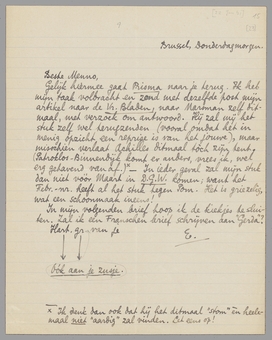 Brussel, Donderdagmorgen.
Beste Menno,
Gelijk hiermee gaat Prisma naar je terug. Ik heb
mijn taak volbracht en zond met dezelfde post mijn
artikel naar de Vr. Bladen, naar Marsman zelf dit-
maal, met verzoek om antwoord. Hij zal mij het
stuk zelf wel terugzenden (vooral omdat het in
menig opzicht een reprise is van het jouwe), maar
misschien verlaat Achilles ditmaal toch zijn tent.
Patroklos-Binnendijk komt er anders, vrees ik, wel
erg gehavend van af.) — In ieder geval zal mijn stuk
dan niet vóór Maart in D.G.W. komen; want het
Febr.-nr. heeft al het stuk tegen Pom. Het is griezelig,
wat een schoonmaak ineens!
In mijn volgenden brief hoop ik de kiekjes te slui-
ten. Zal ik een Franschen brief schrijven aan "Gerda"?
Hart. gr. van je
E.
óók aan je zusje.
x Ik denk dan ook dat hij het ditmaal "stom" en heele-
maal niet "aardig" zal vinden. Let eens op!